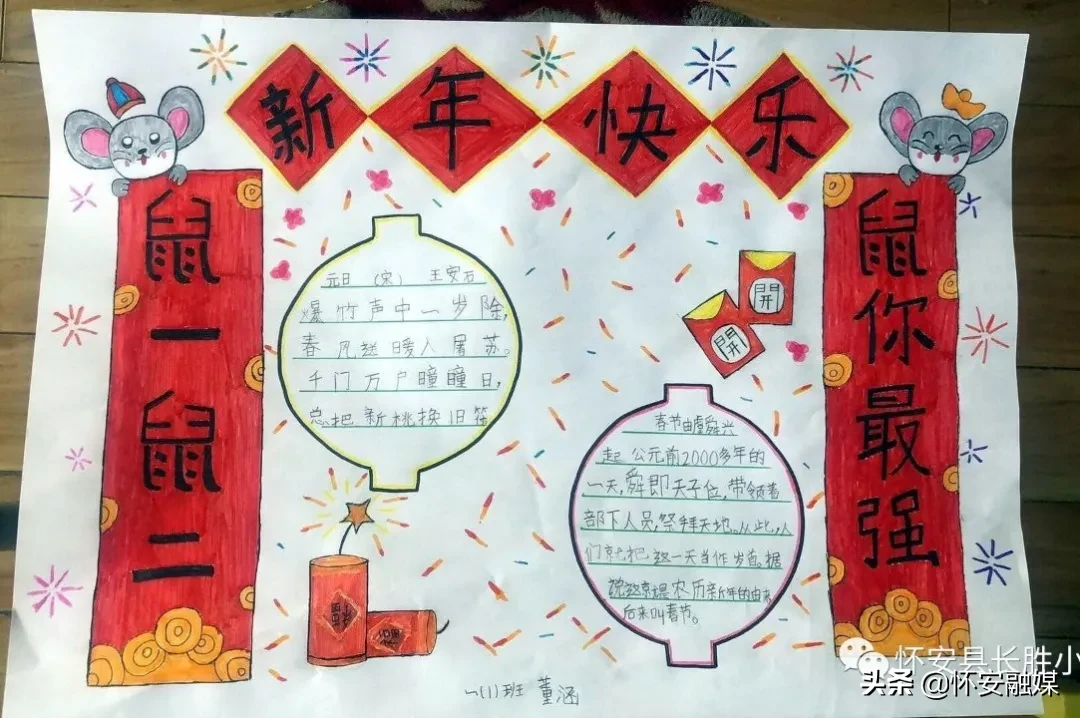 新年快乐
鼠一鼠二
鼠你最强
元日 (宋) 王安石
爆竹声中一岁除,
春风送暖入屠苏。
千门万户曈曈日,
总把新桃换旧符
開
開
春节由虞舜兴
起 公元前2000多年的
一天,舜即天子位,带领着
部下人员,祭拜天地。从此,人
们就把这一天当作岁首。据
说这就是农历新年的由来
后来叫春节。
福
福
一(1)班 董涵
怀安县长胜小
头条 @怀安融媒